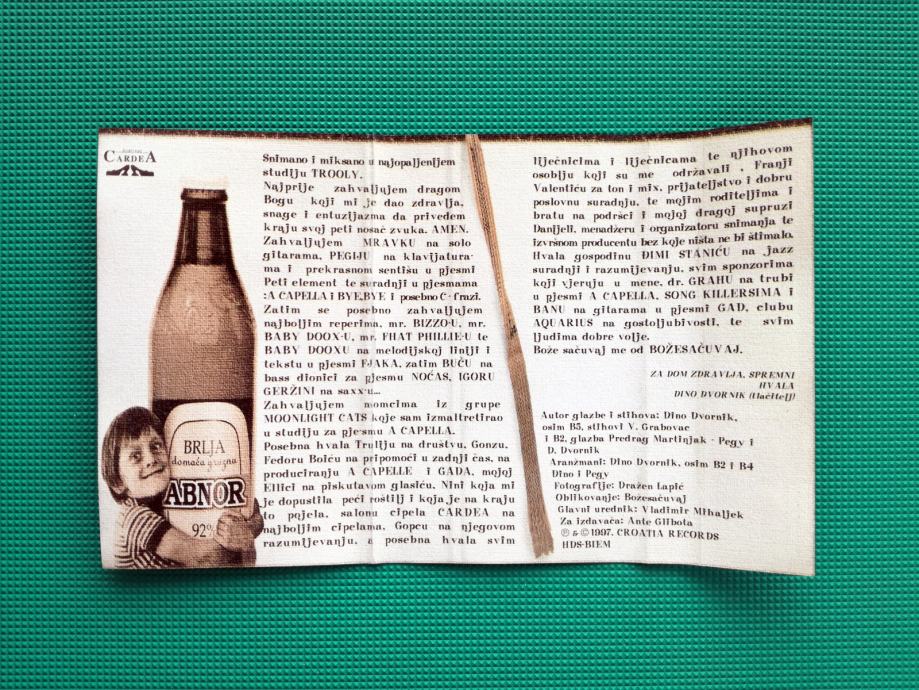 CARDEA
BRLJA
domaća grozna
ABNOR
92%
Snimano i miksano u najopaljenijem
studiju TROOLY.
Najprije zahvaljujem dragom
Bogu koji mi je dao zdravlja,
snage i entuzijazma da privedem
kraju svoj peti nosač zvuka. AMEN.
Zahvaljujem MRAVKU na solo
gitarama, PEGIJU na klavijatura-
ma i prekrasnom sentišu u pjesmi
Peti element te suradnji u pjesmama
:A CAPELLA i BYE,BYE i posebno C- frazi.
Zatim se posebno zahvaljujem
najboljim reperima, mr. BIZZO-U, mr.
BABY DOOX-U, mr. FHAT PHILLIE-U te
BABY DOOXU na melodijskoj liniji i
tekstu u pjesmi FJAKA, zatim BUĆU na
bass dionici za pjesmu NOĆAS, IGORU
GERŽINI na saxx-u...
Zahvaljujem momcima iz grupe
MOONLIGHT CATS koje sam izmaltretirao
u studiju za pjesmu A CAPELLA.
Posebna hvala Truliju na društvu, Gonzu,
Fedoru Boiću na pripomoći u zadnji čas, na
produciranju A CAPELLE i GADA, mojoj
Ellici na piskutavom glasiću, Nini koja mi
je dopustila peći roštilj i koja je na kraju
to pojela, salonu cipela CARDEA na
najboljim cipelama, Gopcu na njegovom
razumijevanju, a posebna hvala svim
liječnicima i liječnicama te njihovom
osoblju koji su me održavali , Franji
Valentiću za ton i mix, prijateljstvo i dobru
poslovnu suradnju, te mojim roditeljima i
bratu na podršci i mojoj dragoj supruzi
Danijeli, menadžeru i organizatoru snimanja te
izvrsnom producentu bez koje ništa ne bi štimalo.
Hvala gospodinu ĐIMI STANIĆU na jazz
suradnji i razumijevanju, svim sponzorima
koji vjeruju u mene, dr. GRAHU na trubi
u pjesmi A CAPELLA, SONG KILLERSIMA i
BANU na gitarama u pjesmi GAD, clubu
AQUARIUS na gostoljubivosti, te svim
ljudima dobre volje.
Bože sačuvaj me od BOŽESAČUVAJ.
ZA DOM ZDRAVLJA, SPREMNI
HVALA
DINO DVORNIK (tlačitelj)
Autor glazbe i stihova: Dino Dvornik,
osim B5, stihovi V. Grabovac
i B2, glazba Predrag Martinjak - Pegy i
D. Dvornik
Aranžmani: Dino Dvornik, osim B2 i B4
Dino i Pegy
Fotografije: Dražen Lapić
Oblikovanje: Božesačuvaj
Glavni urednik: Vladimir Mihaljek
Za izdavača: Ante Glibota
℗ & © 1997. CROATIA RECORDS
HDS-BIEM